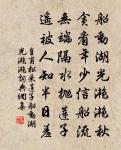 船動湖光灩灩秋
貪看年少信船流
無端隔水拋蓮子
遙被人知半日羞
皇甫松采蓮子船動湖
光灩灩詞典網集